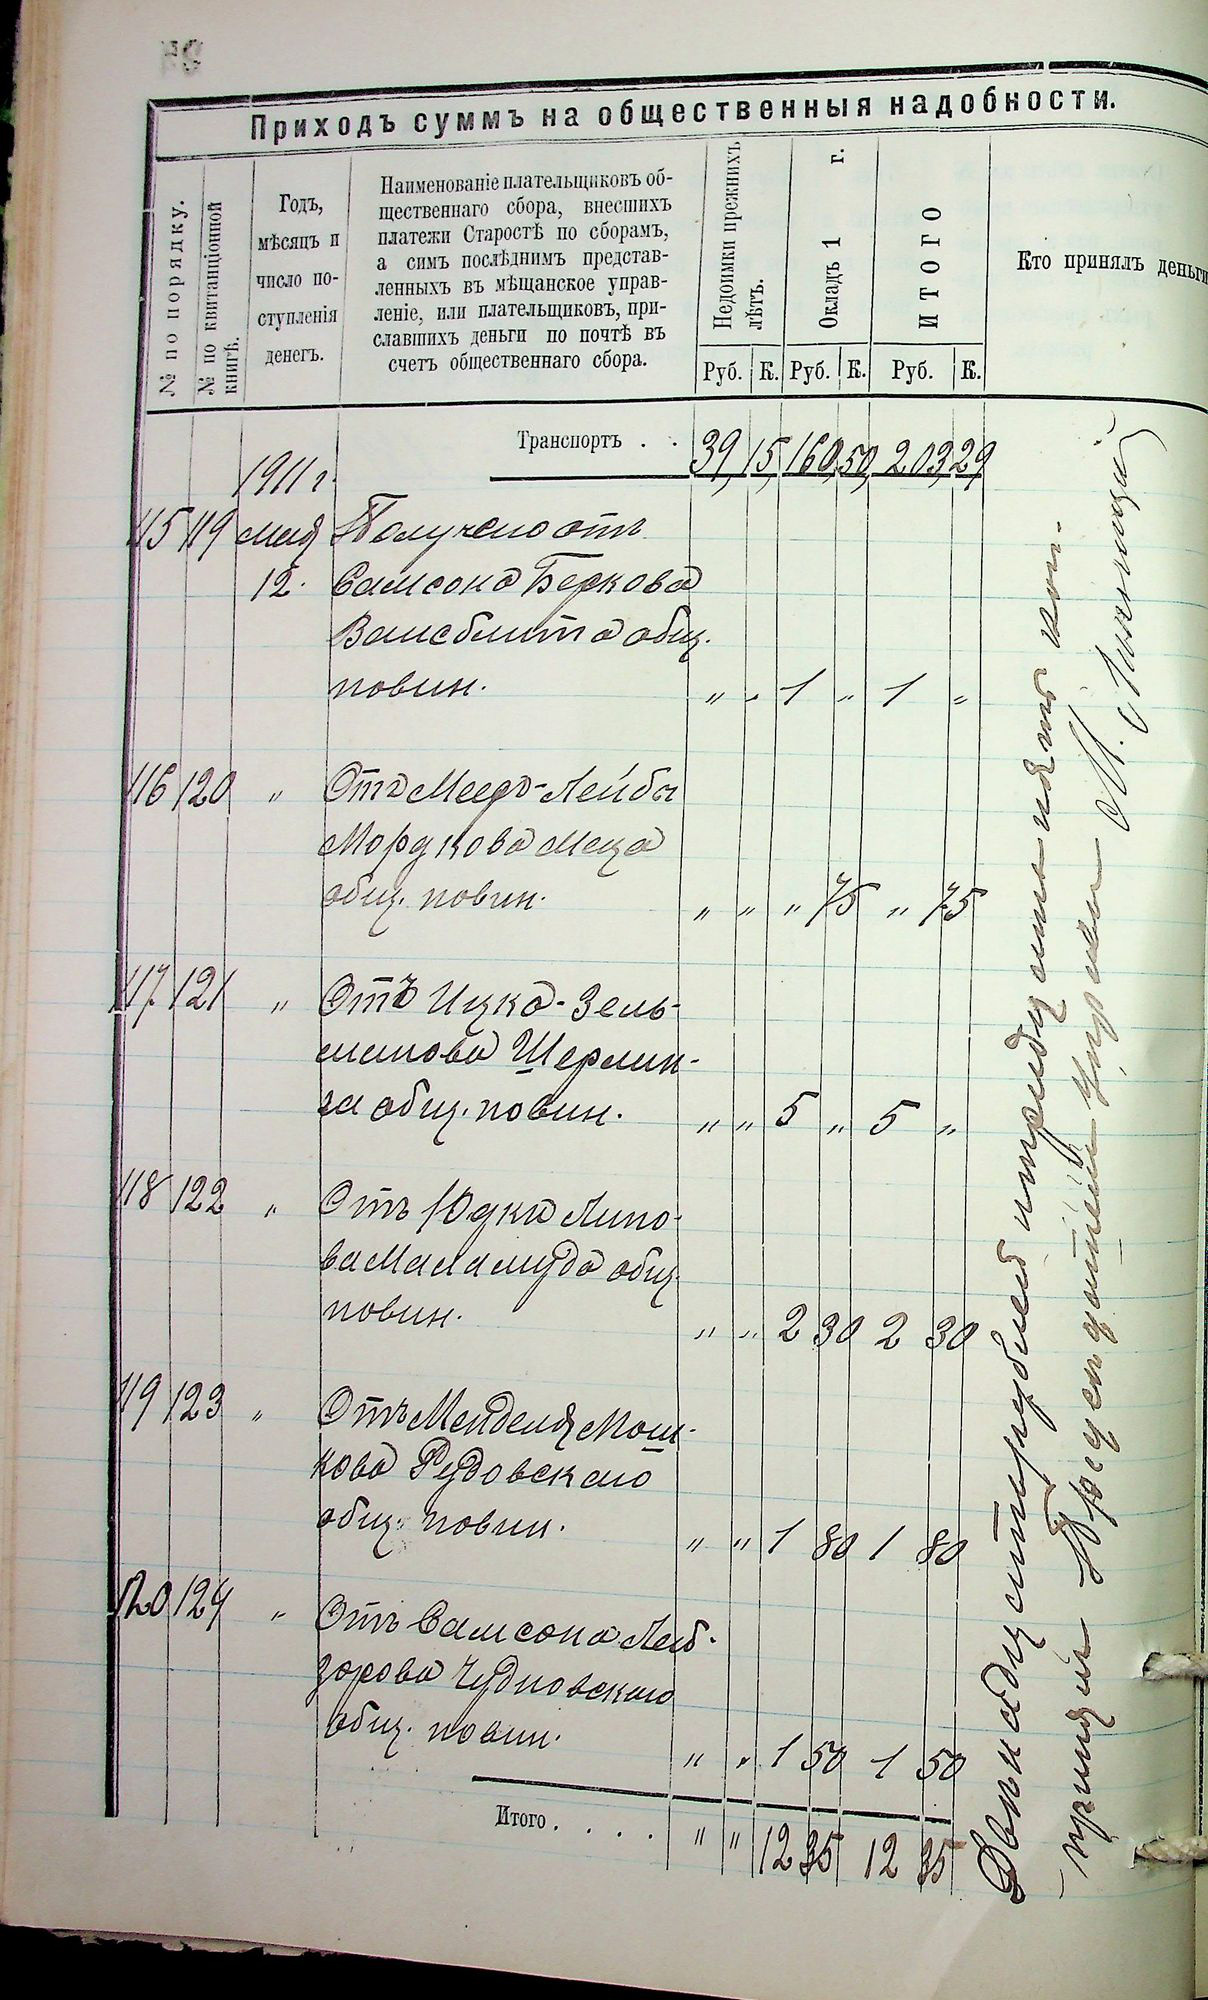 Приходъ суммъ на общественныя надобности.
№ по порядку.
№ по квитанціонной
книгѣ.
Годъ,
мѣсяцъ и
число по-
ступленія
денегъ.
Наименованіе плательщиковъ об-
щественнаго сбора, внесшихъ
платежи Старостѣ по сборамъ,
а симъ послѣднимъ представ-
ленныхъ въ мѣщанское управ-
леніе, или плательщиковъ, при-
славшихъ деньги по почтѣ въ
счетъ общественнаго сбора.
Недоимки прежнихъ
лѣтъ.
Окладъ 1 г.
ИТОГО
Кто принялъ деньги
Руб. К. Руб. К. Руб. К.
Транспортъ . . 39, 15, 160, 50, 203, 29,
1911 г.
115 119 мая Получено отъ
12. Самсона Беркова
общ.
повин. " " 1 " 1 "
116 120 " Отъ Мееръ-Лейбы
Мордкова Меца
общ. повин. " " " 75 " 75
117. 121 " Отъ Ицко-Зель-
манова Шерман-
за общ. повин. " " 5 " 5 "
118 122 " Отъ Юдки Липо-
ва Маламуда общ.
повин. " " 2 30 2 30
119 123 " Отъ Менделя Мош-
кова Рудовскаго
общ. повин. " " 1 80 1 80
120 124 " Отъ Самсона Лей-
зорова Чудновскаго
общ. повин. " " 1 50 1 50
Итого . . . . " " 12 35 12 35
Двѣнадцать рублей тридцать пять коп.
принялъ Предсѣдатель Управы М.